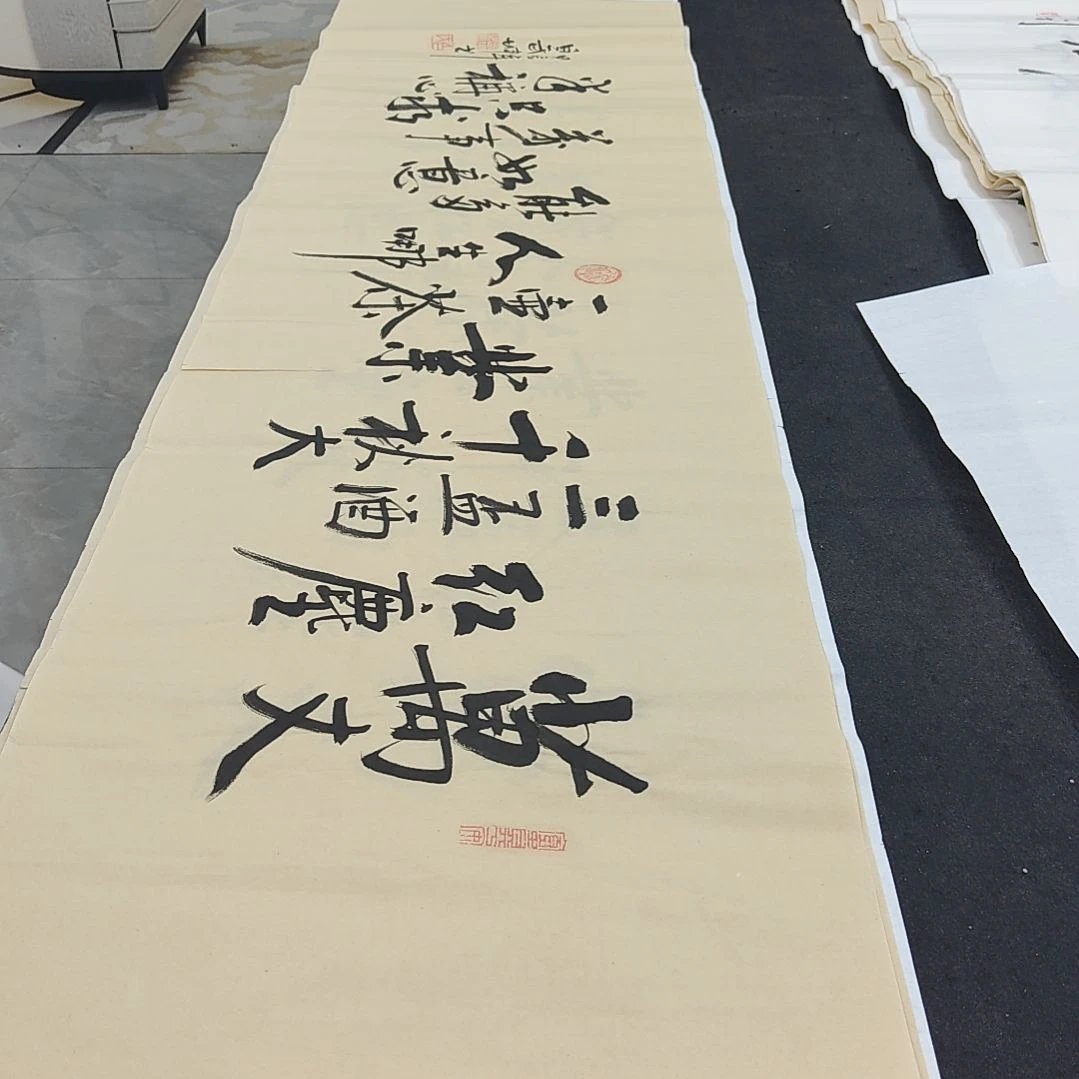 萬丈
紅塵
三盃酒
千秋大
業
一壺茶
人生哪
能多
如意
萬事
只求
稱心